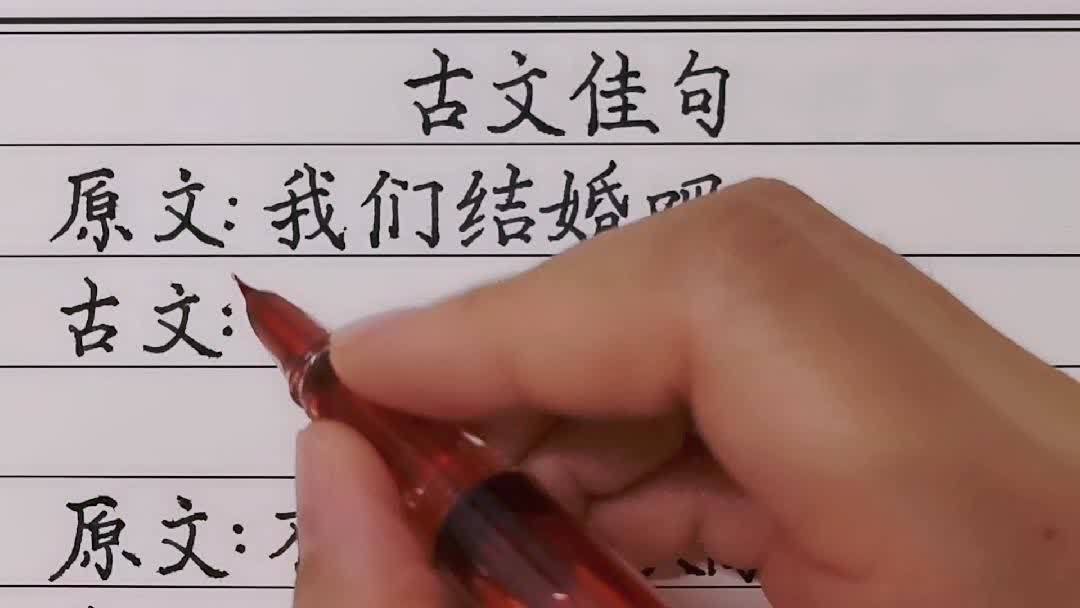 古文佳句
原文:我们结婚吧
古文:
原文: